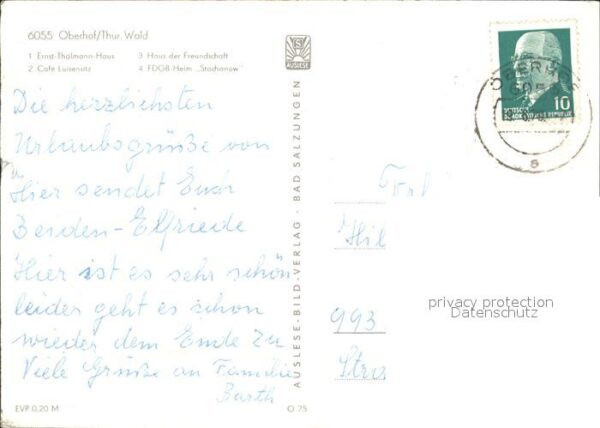 6055 Oberhof/Thür. Wald
1 Ernst-Thälmann-Haus 3 Haus der Freundschaft
2 Café Luisensitz 4 FDGB-Heim „Stachanow"
AUSLESE
Die herzlichsten
Urlaubsgrüße von
Hier sendet Euch
Beiden - Elfriede
Hier ist es sehr schön
leider geht es schon
wieder dem Ende zu
Viele Grüße an Familie
Barth
EVP 0,20 M
O 75
AUSLESE-BILD-VERLAG · BAD SALZUNGEN
10
OBERHOF
a
Hil
993
privacy protection
Datenschutz